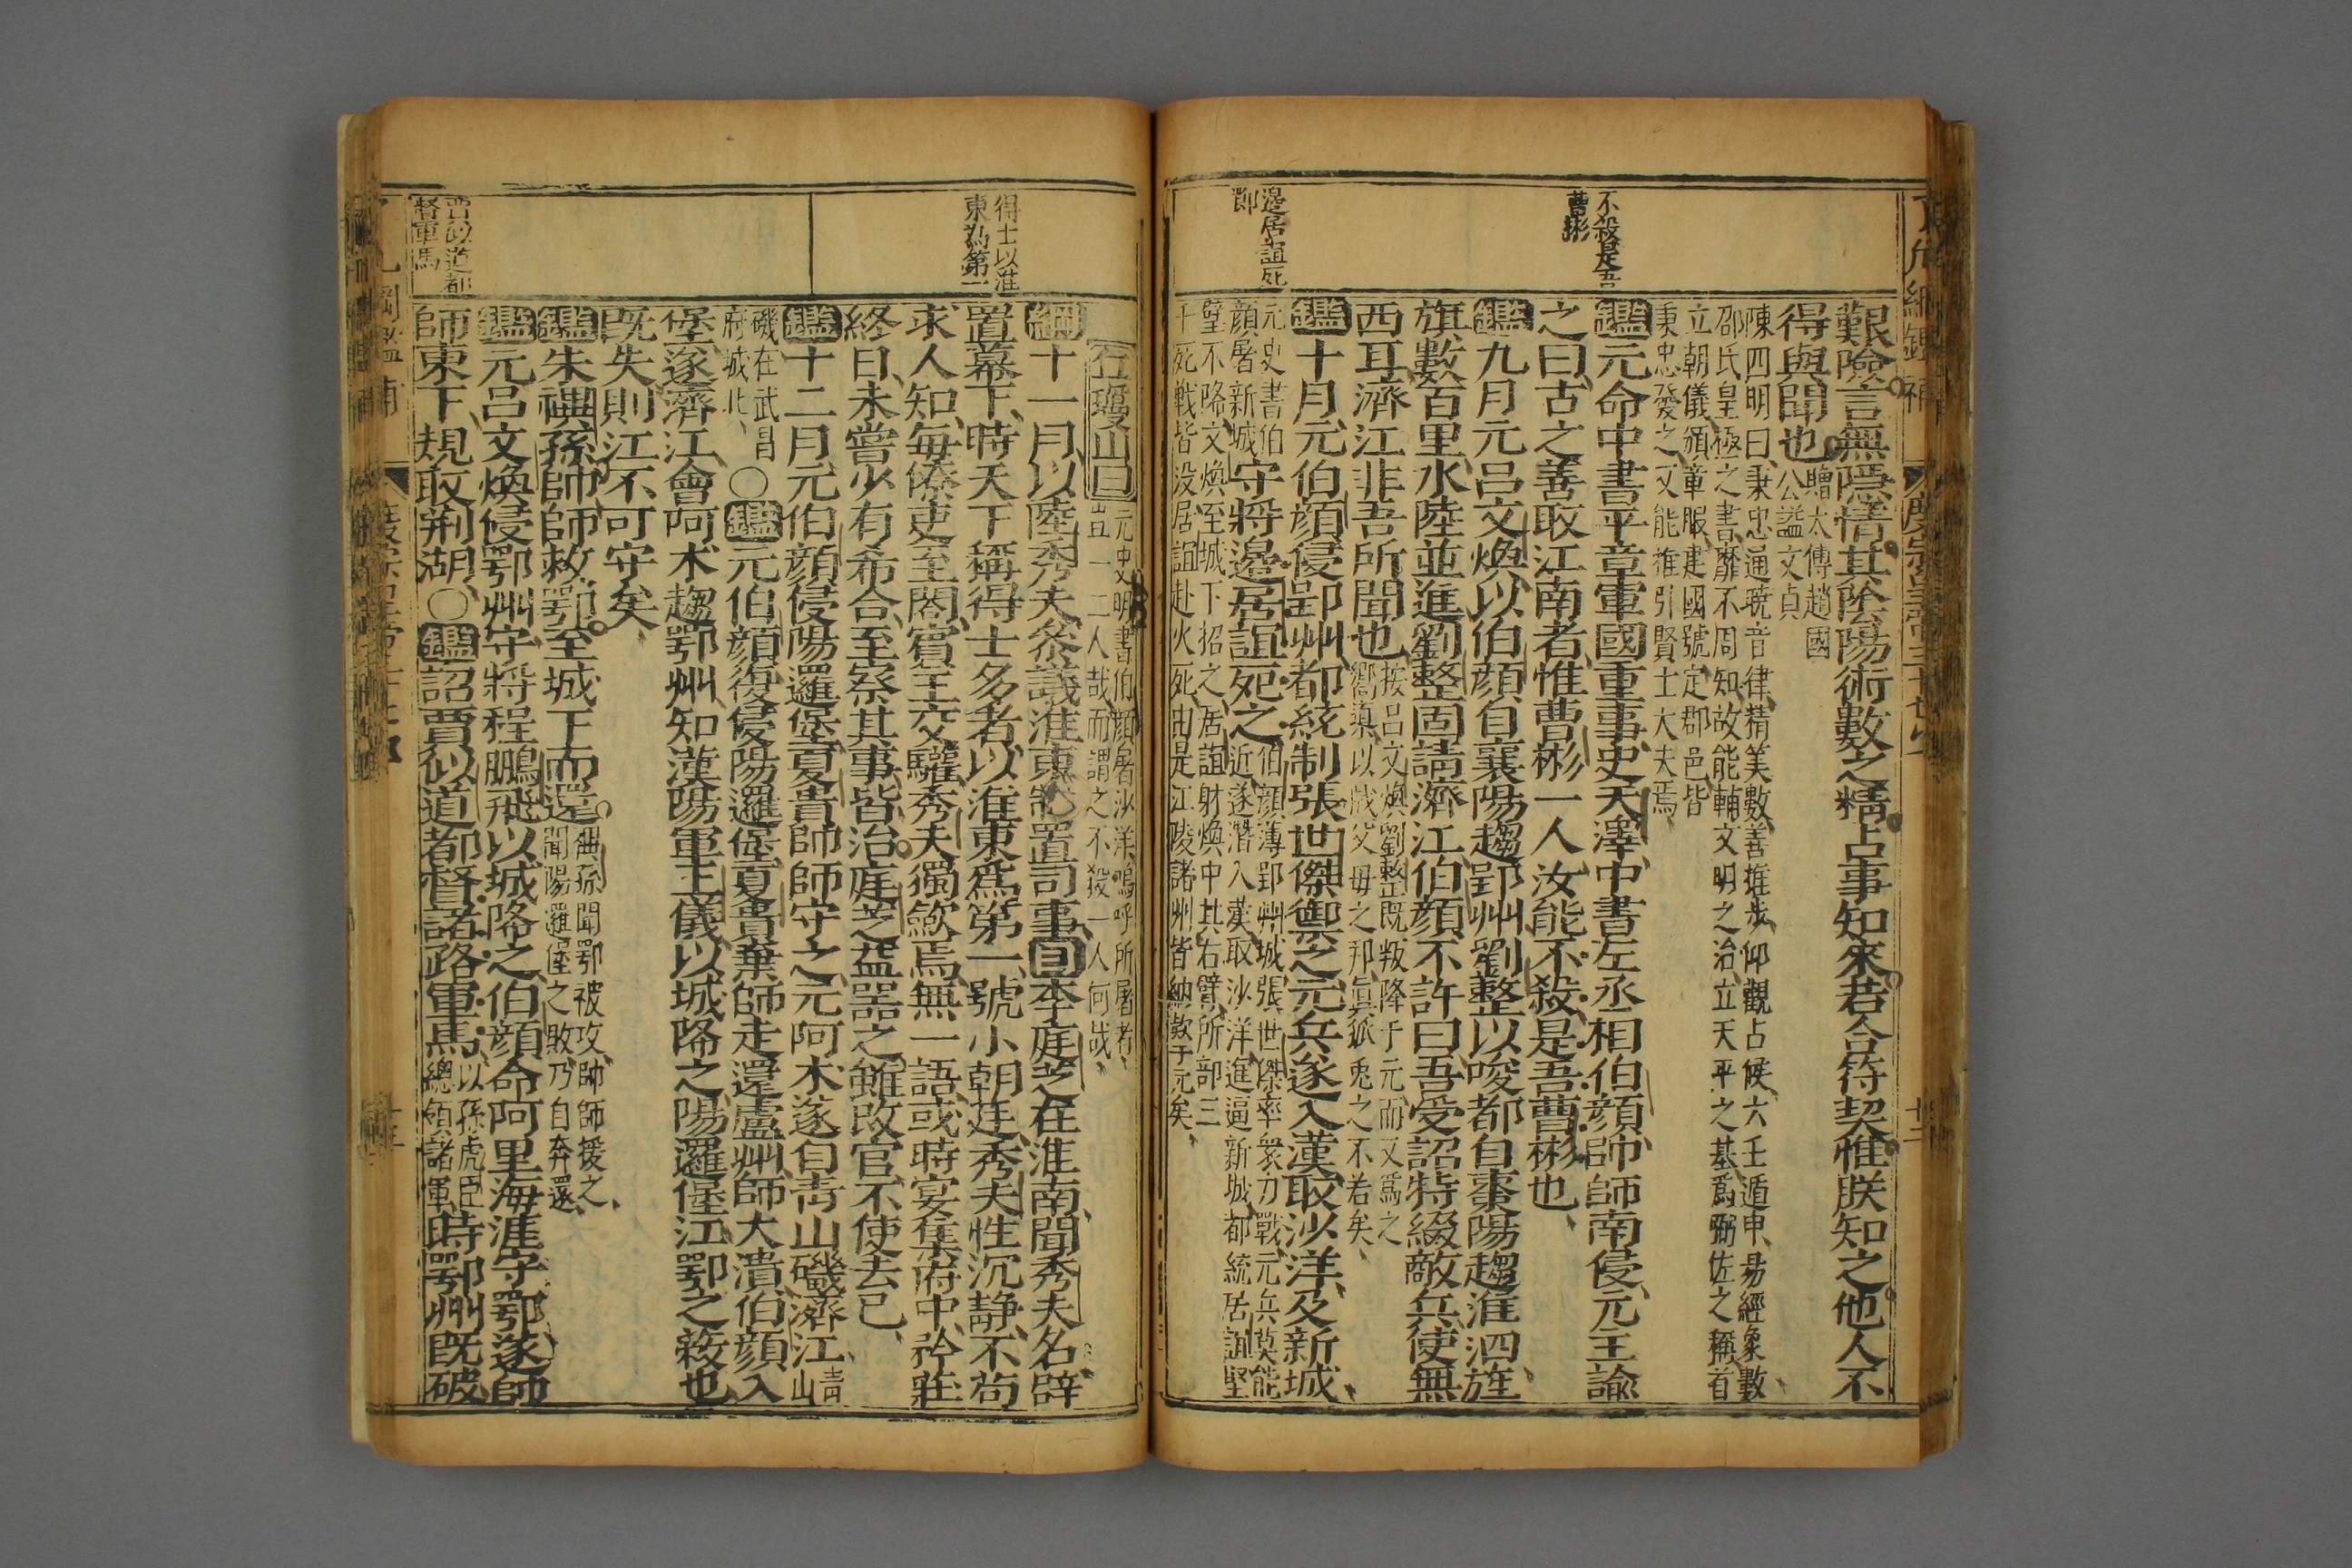 不殺是吾
曹彬
邊居誼死
節
艱險言無隱情其陰陽術數之精占事知來若合符契惟朕知之他人不
得與聞也贈太傅趙國
公謚文貞
陳四明曰秉忠通曉音律精筭數善推步仰觀占候六壬遁甲易經象數
邵氏皇極之書靡不周知故能輔文明之治立天平之基爲弼佐之稱首
立朝儀頒章服建國號定郡邑皆
秉忠發之又能推引賢士大夫焉
鑑元命中書平章軍國重事史天澤中書左丞相伯顔帥師南侵元主諭
之曰古之善取江南者惟曹彬一人汝能不殺是吾曹彬也
鑑九月元呂文煥以伯顔自襄陽趨郢州劉整以唆都自棗陽趨淮泗旌
旗數百里水陸並進劉整固請濟江伯顔不許曰吾受詔特綴敵兵使無
西耳濟江非吾所聞也按呂文煥劉整既叛降于元而又爲之
嚮導以戕父母之邦眞狐兎之不若矣
鑑十月元伯顔侵郢州都統制張世傑禦之元兵遂入漢取沙洋及新城
元史書伯
顔屠新城守將邊居誼死之伯顔薄郢州城張世傑率衆力戰元兵莫能
近遂潛入漢取沙洋進逼新城都統居誼堅
壁不降文煥至城下招之居誼射煥中其右臂所部三
千死戰皆没居誼赴火死由是江陵諸州皆納欵于元矣
得士以淮
東爲第一
賈似道都
督軍馬
丘瓊山曰元史明書伯顔屠沙洋嗚呼所屠者
豈一二人哉而謂之不殺一人何哉
綱十一月以陸秀夫叅議淮東制置司事目李庭芝在淮南聞秀夫名辟
置幕下時天下稱得士多者以淮東爲第一號小朝廷秀夫性沉静不苟
求人知每僚吏至閤賓主交驩秀夫獨歛焉無一語或時宴集府中矜莊
終日未嘗少有希合至察其事皆治庭芝益噐之雖改官不使去已
鑑十二月元伯顔侵陽邏堡夏貴帥師守之元阿术遂自青山磯濟江青山
磯在武昌
府城北○鑑元伯顔復侵陽邏堡夏貴棄師走還廬州師大潰伯顔入
堡遂濟江會阿术趨鄂州知漢陽軍王儀以城降之陽邏堡江鄂之蔽也
既失則江不可守矣
鑑朱禩孫帥師救鄂至城下而還禩孫聞鄂被攻帥師援之
聞陽邏堡之敗乃自奔還
鑑元呂文煥侵鄂州守將程鵬飛以城降之伯顔命阿里海涯守鄂遂帥
師東下規取荆湖○鑑詔賈似道都督諸路軍馬以孫虎臣
總領諸軍時鄂州既破